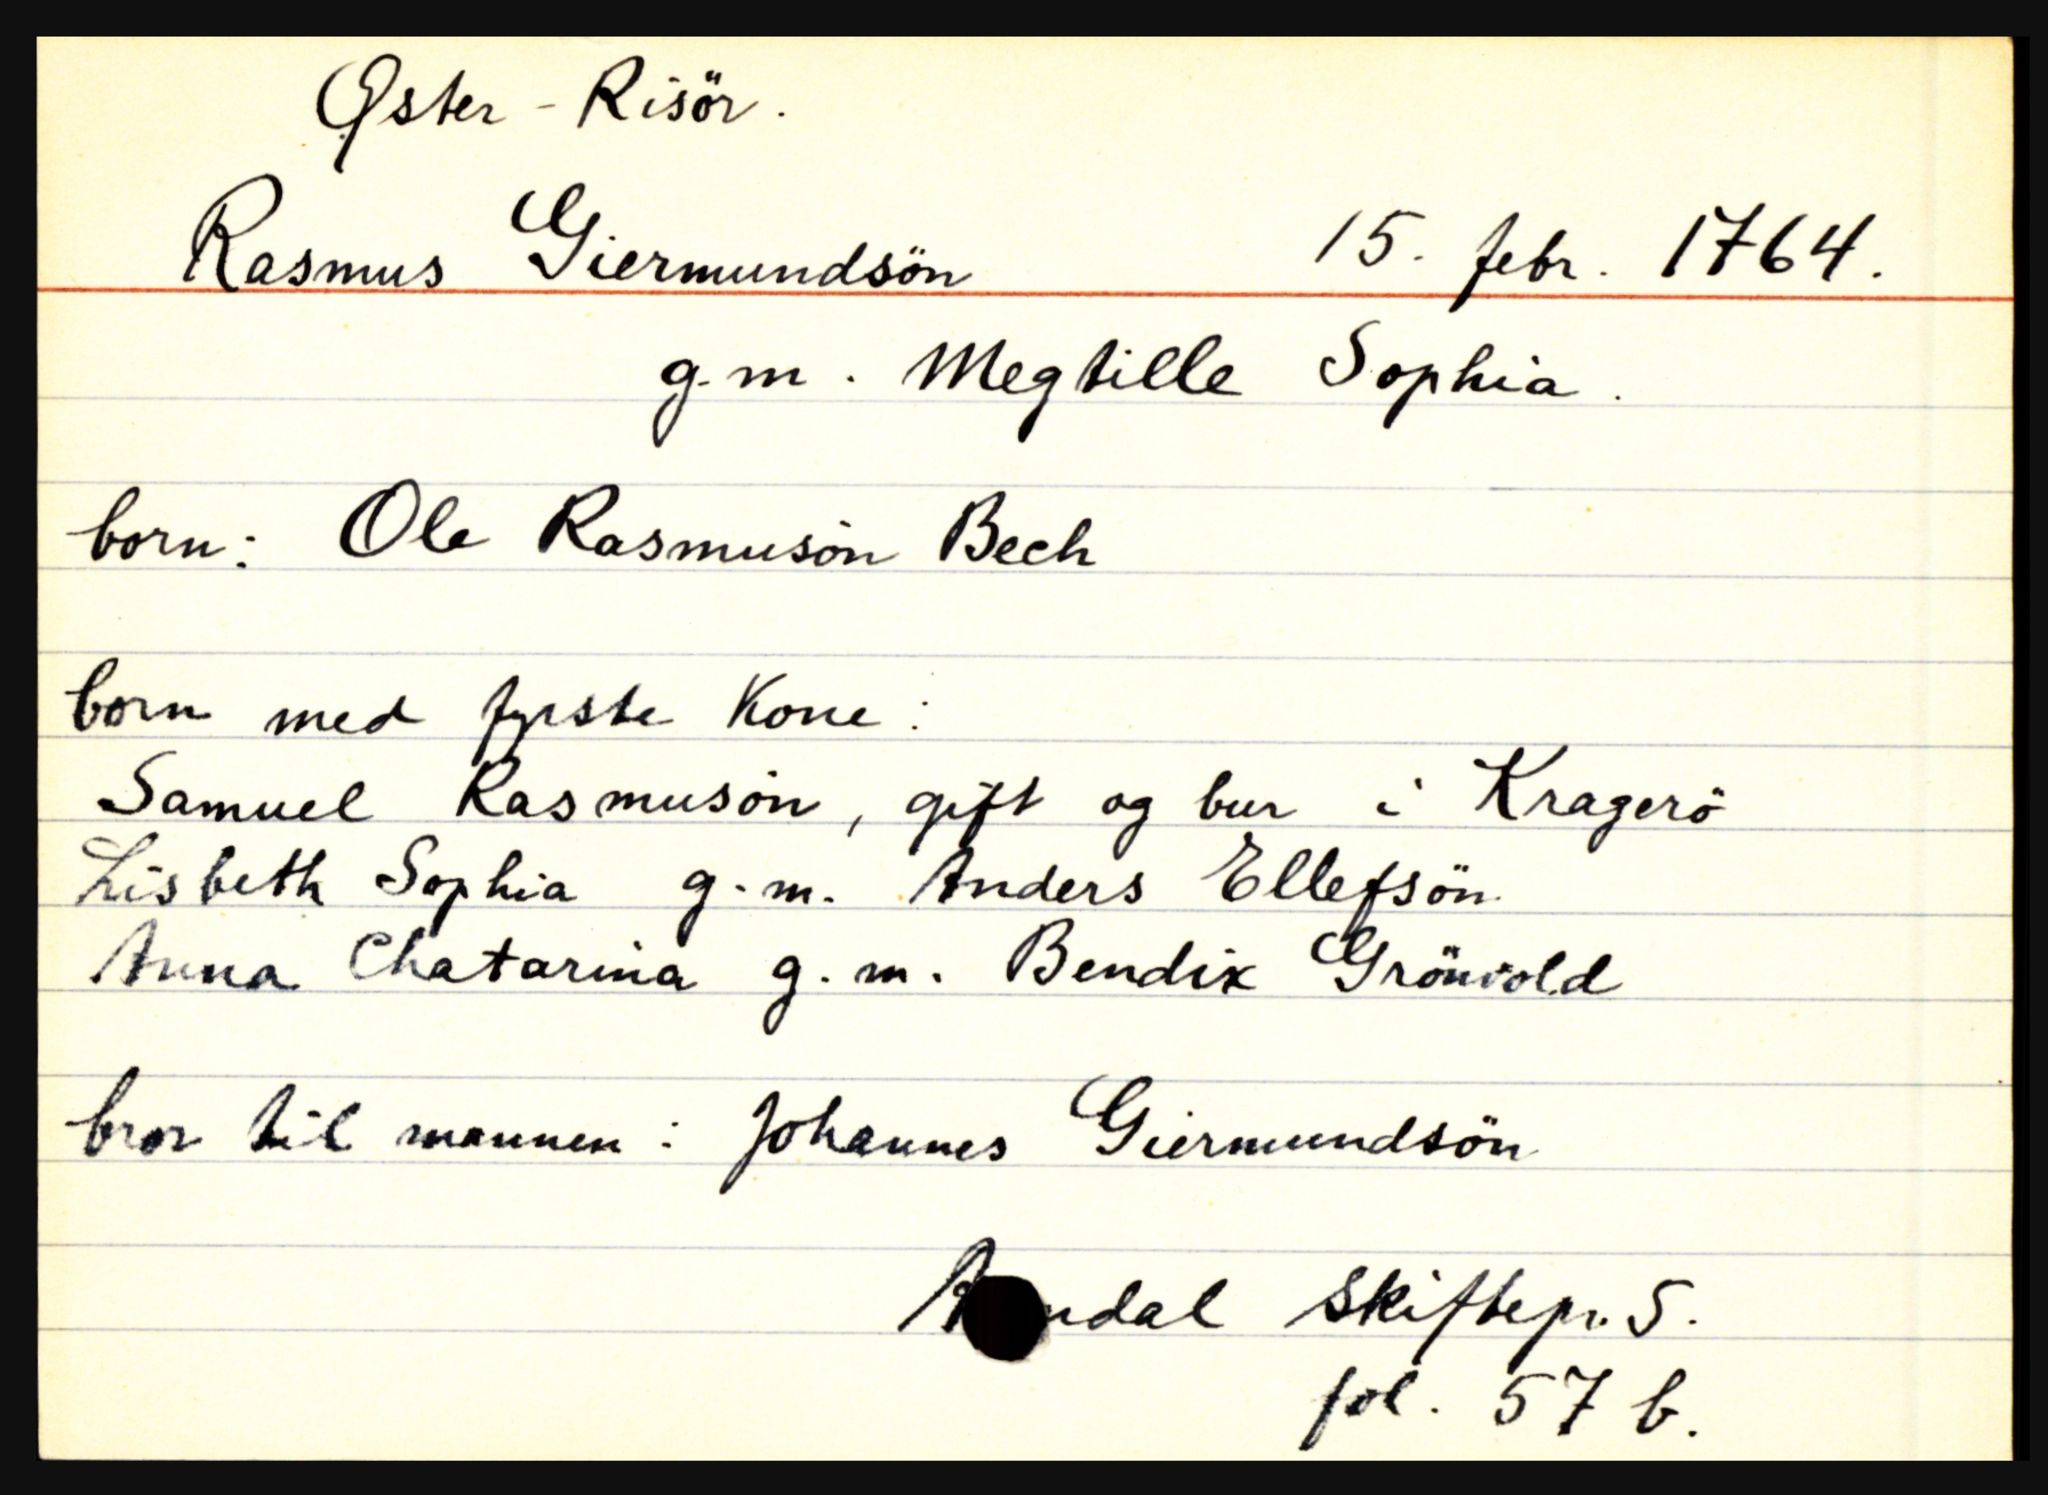 Øster - Risör.
Rasmus Giermundsön 15. febr. 1764.
g.m. Megtille Sophia.
born: Ole Rasmusön Bech
born med fyrste Kone:
Samuel Rasmusön, gift og bur i Kragerö
Lisbeth Sophia g.m. Anders Ellefsön
Anna Chatarina g.m. Bendix Grönvold
bror til mannen: Johannes Giermundsön
Skiftepr. 5.
fol. 57 b.